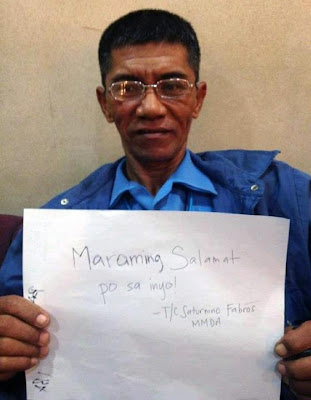 Maraming Salamat
po sa inyo!
- T/C Saturnino Fabros
MMDA